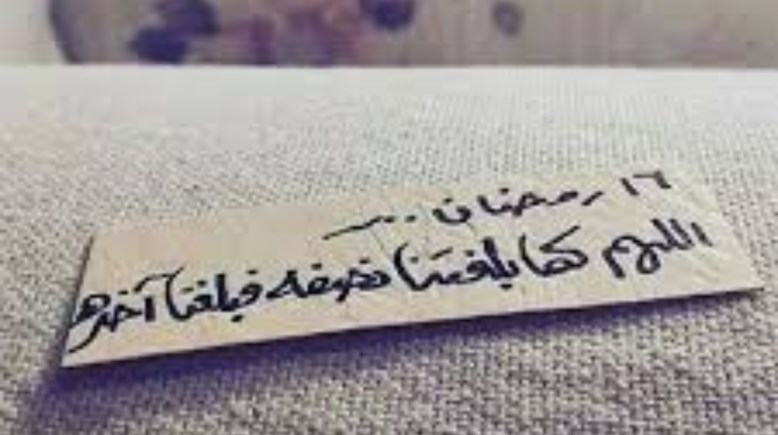 ١٦ رمضان ..
اللهم كما بلغتنا نصفه فبلغنا آخره